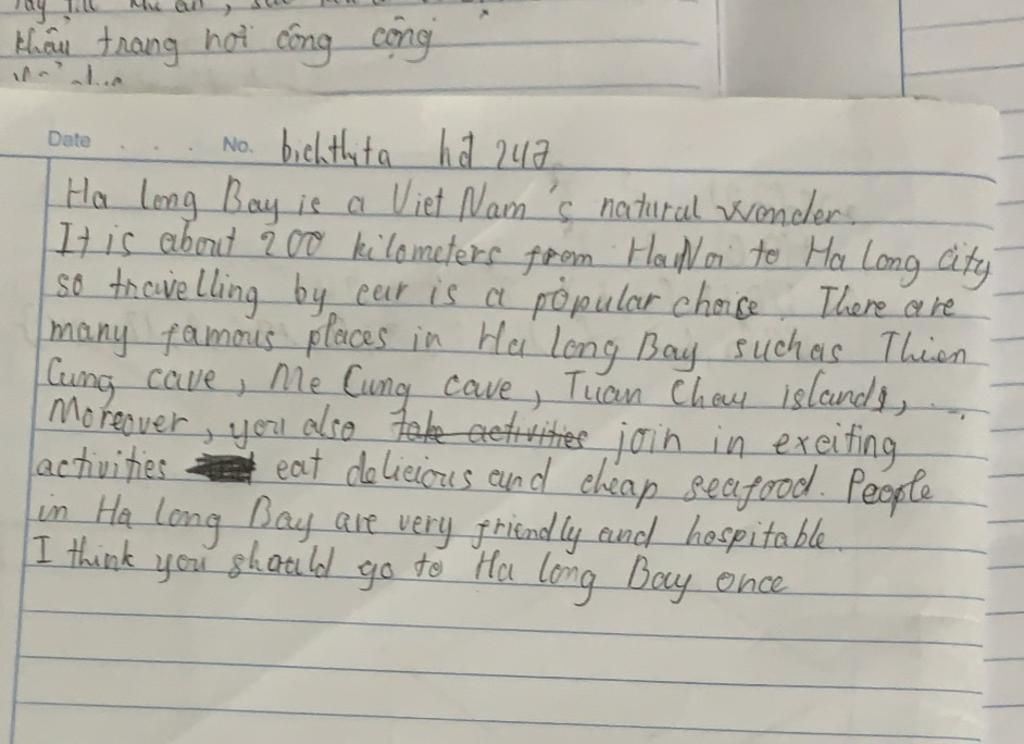 khẩu trang nơi công cộng
Date . . . No. bichthita hd 247
Ha long Bay is a Viet Nam's natural wonder.
It is about 200 kilometers from HaNoi to Ha long city
so travelling by car is a popular choise. There are
many famous places in Ha long Bay such as Thien
Cung cave, Me Cung cave, Tuan Chau islands, ...
Moreover, you also take activities join in exciting
activities eat delicious and cheap seafood. People
in Ha long Bay are very friendly and hospitable.
I think you should go to Ha long Bay once